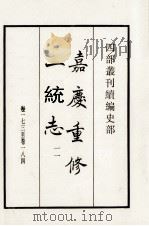 四部叢刊續編史部
嘉慶重修
一統志
一一
卷一七三至卷一八四